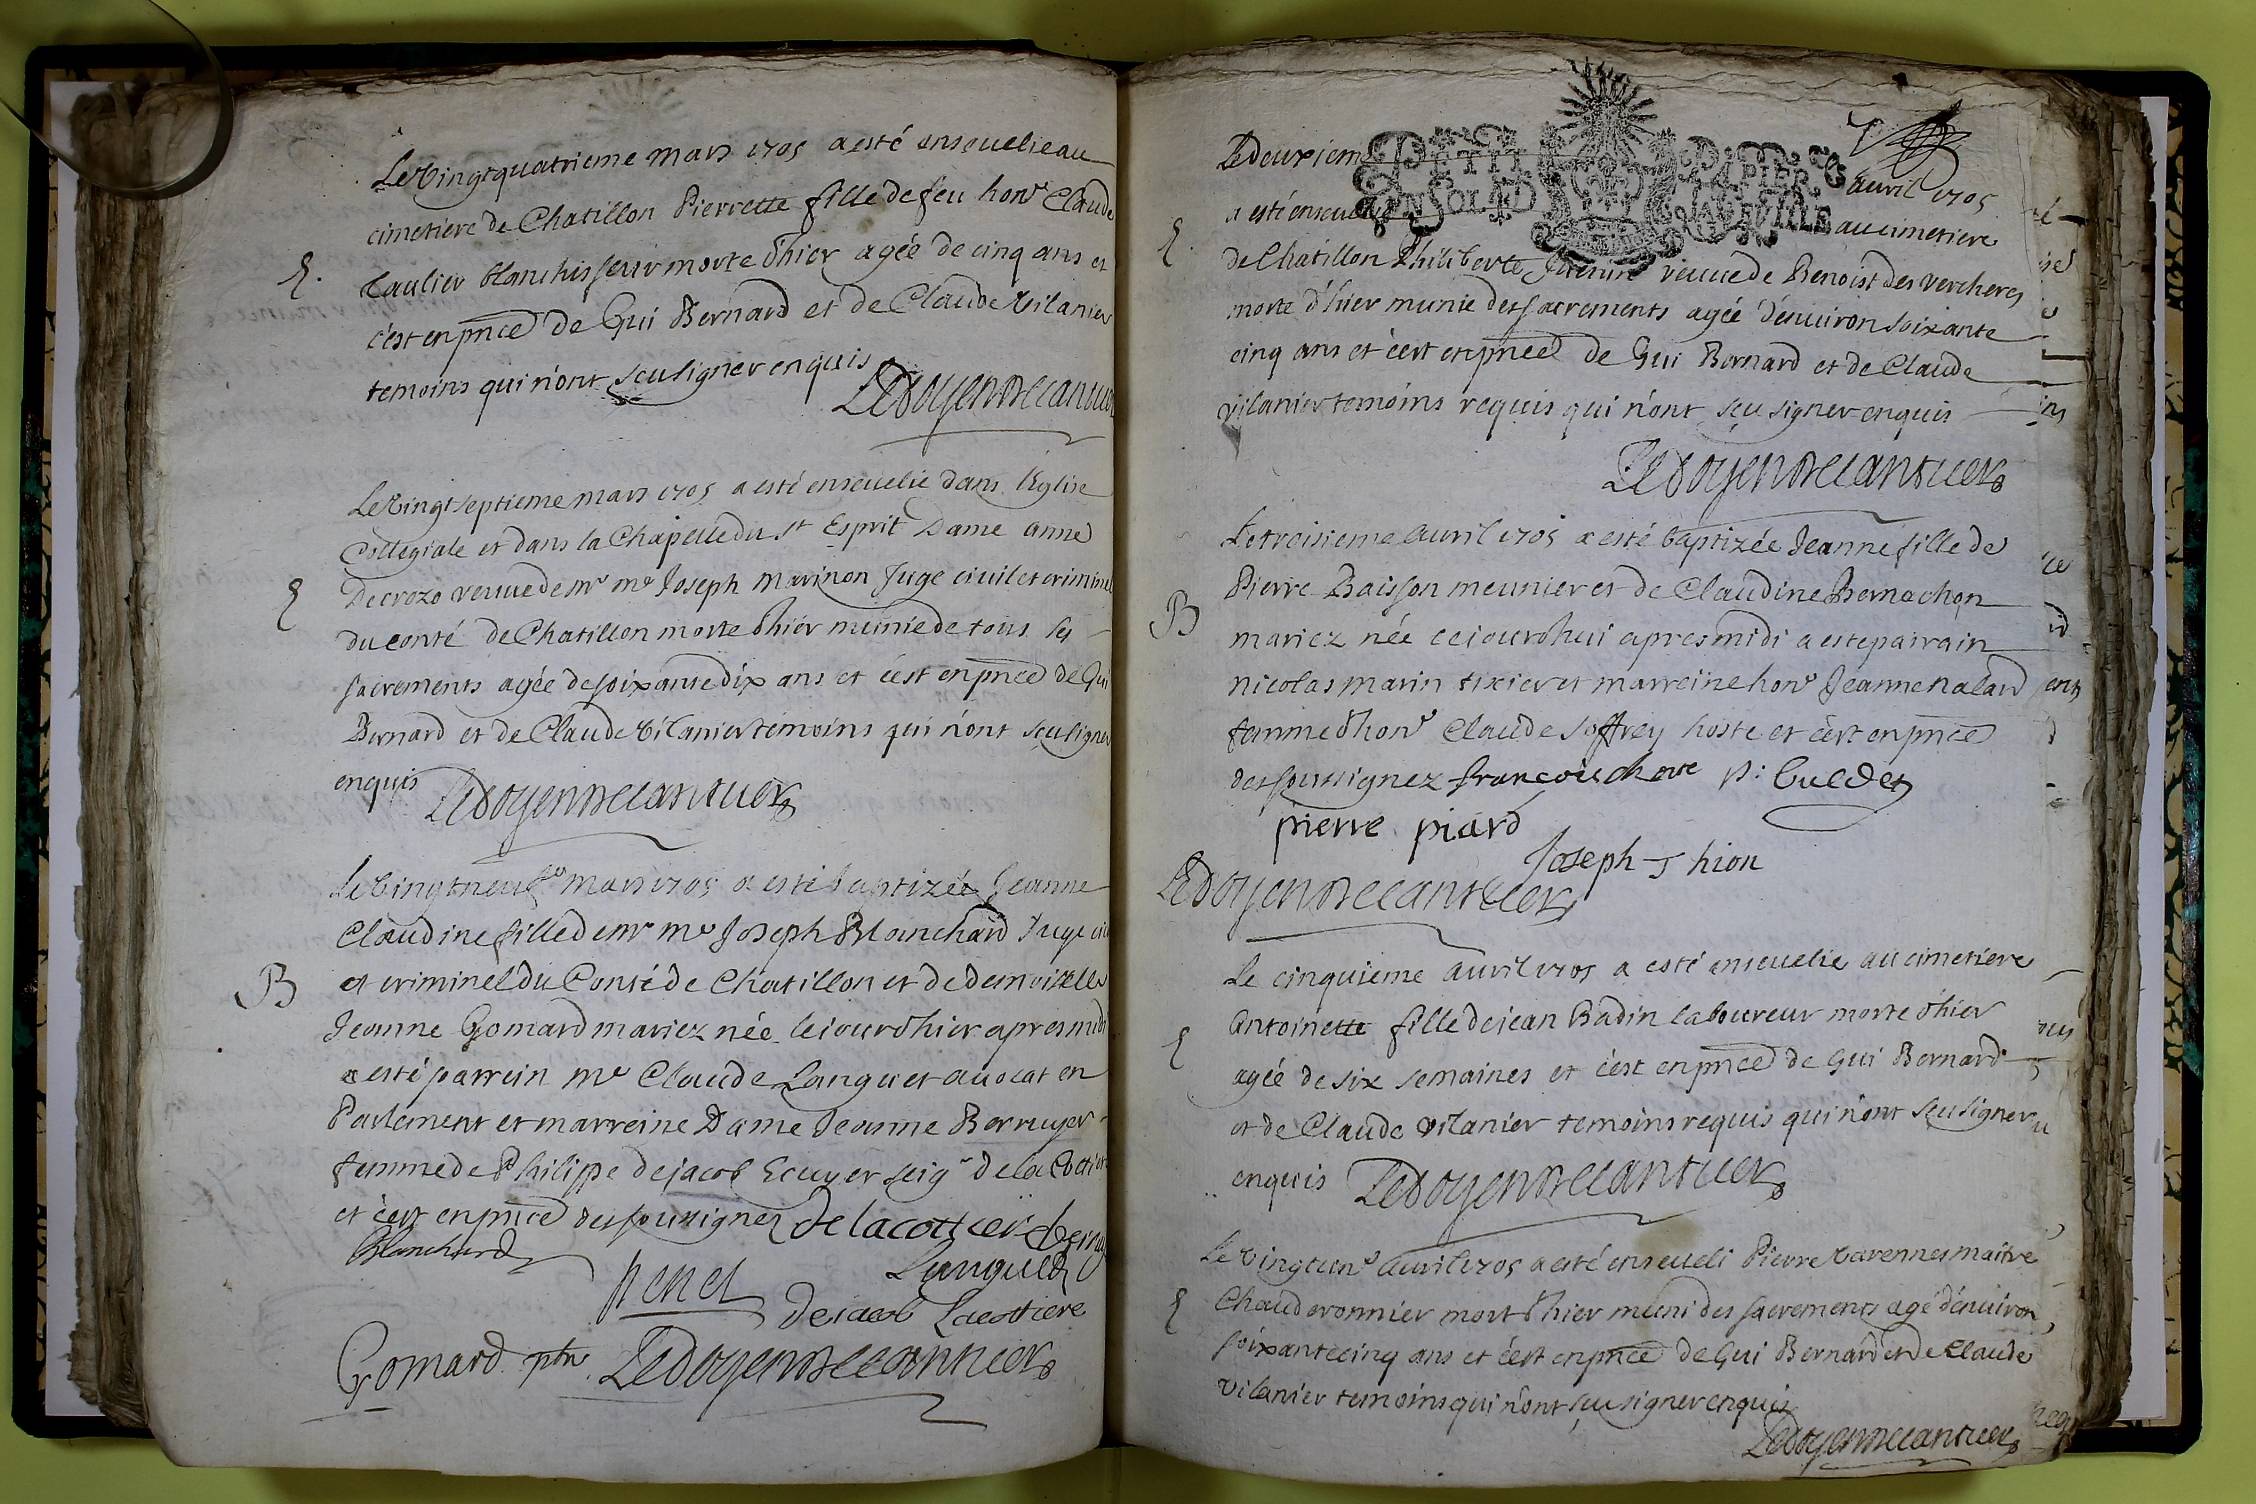 Le vingtquatrieme mars 1705 a esté enseuelie au
cimetiere de Chatillon Pierrette fille de feu hon^e Claude
Caulier blanchisseur morte d'hier agée de cinq ans et
c'est en pnce de Gui Bernard et de Claude Vilanier
temoins qui n'ont sçu signer enquis
Le doyen Decantuer
Le vingt septieme mars 1705 a esté enseuelie dans l'Eglise
Collegiale et dans la Chapelle du st Esprit Dame anne
Decrozo veuue de mr me Joseph marinon Juge ciuil et criminel
du conté de Chatillon morte d'hier munie de tous les
sacrements agée de soixante dix ans et c'est en pnce de Gui
Bernard et de Claude Vilanier temoins qui n'ont sçu signer
enquis
Le doyen Decantuer
B
Le vingt neuf^e mars 1705 a esté baptizée Jeanne
Claudine fille de mr me Joseph Blanchard Juge ciu
et criminel du Conté de Chatillon et de demoiselle
Jeanne Gomard mariez née le jour d'hier apres midi
a esté parrein me Claude Languet auocat en
Parlement et marreine Dame Jeanne Berruyer
femme de Philippe de jacob Ecuyer seigr de la Cottiere
et c'est en pnce des soussignez De lacottiere berruye
Blanchard
Languet
penet
Dejacob Lacottiere
Gomard ptre
Le doyen Decantuer
Le deuxieme
PETIT PAPIER
auril 1705
a esté enseuelie
au cimetiere
de Chatillon Philiberte veuue de Benoist des vercheres
morte d'hier munie des sacrements agée d'enuiron soixante
cinq ans et c'est en pnce de Gui Bernard et de Claude
vilanier temoins requis qui n'ont sçu signer enquis
Le doyen Decantuer
B
Le troisieme auril 1705 a esté baptizée Jeanne fille de
Pierre Baisson meunier et de Claudine Bernachon
mariez née cejourd'hui apres midi a este pairain
nicolas marin tixier et marreine hon^e Jeanne nalard
femme d'hon^e Claude Joffrey hoste et c'est en pnce
des soussignez francois p: buldet
pierre piard
Joseph Thion
Le doyen Decantuer
Le cinquieme auril 1705 a esté enseuelie au cimetiere
Antoinette fille de jean Badin laboureur morte d'hier
agée de six semaines et c'est en pnce de Gui Bernard
et de Claude vilanier temoins requis qui n'ont sçu signer
enquis
Le doyen Decantuer
Le vingt un^e auril 1705 a esté enseueli Pierre Varennes maitre
Chauderonnier mort d'hier muni des sacrements agé d'enuiron
soixante cinq ans et c'est en pnce de Gui Bernard et de Claude
vilanier temoins qui n'ont sçu signer enquis
Le doyen Decantuer